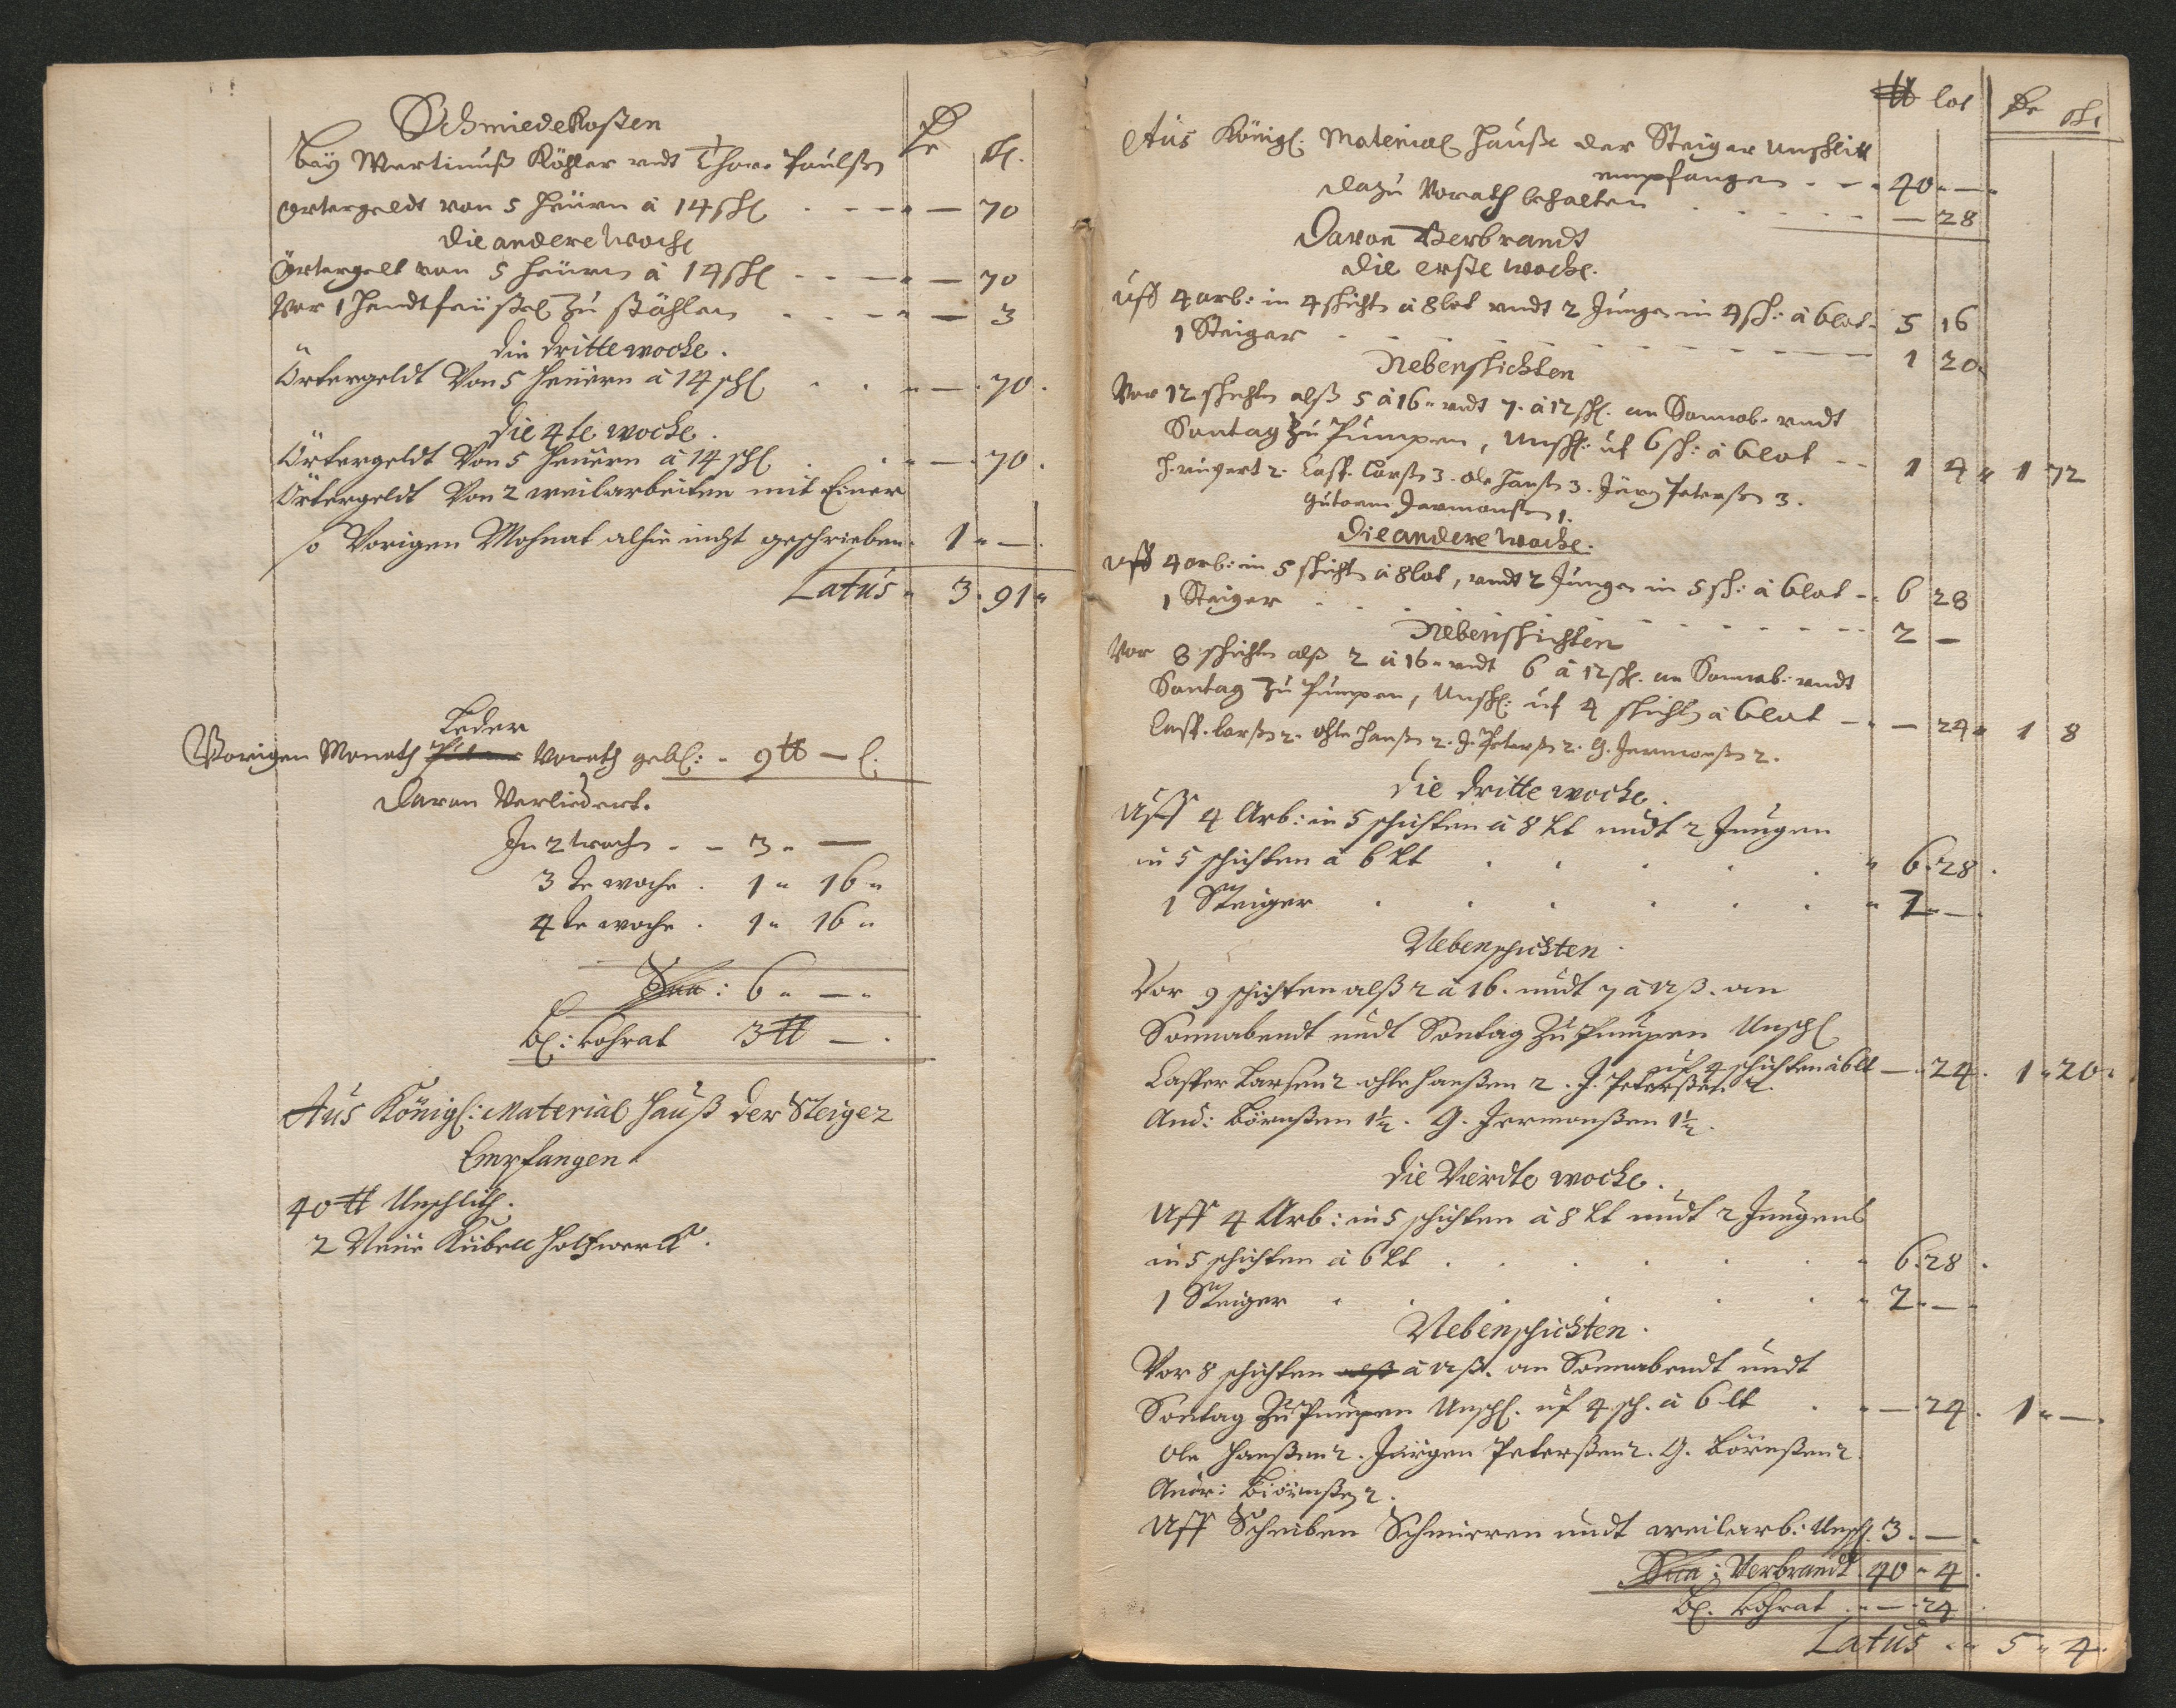 Schmiedekosten
Bey Mertinuß Köhler undt Thore Paulßen
Rr ßl.
Örtergeldt von 5 heüern à 14 ßl - - - " — 70
die andere woche
Örtergelt von 5 heüern à 14 ßl - - - " — 70
Vor 1 Handtfeüstel zu stählen - - - " — 3
die dritte woche.
Örtergeldt Von 5 heüern à 14 ßl . . " — . 70 .
die 4te woche.
Örtergeldt Von 5 heüern à 14 ßl . . " — . 70 .
Örtergeldt Von 2 weilarbeiten mit Einer
so Vorigen Mohnat alhie nicht geschrieben . 1 " — .
Latus " 3 . 91 "
Leder
Vorigen Monath Vorath gebl: . 9 ℔ — l.
Davon Verliedert.
In 2 woch - - 3 " —
3 te woche . 1 " 16 "
4 te woche . 1 " 16 "
Sua: 6 " — "
bl: Vohrat 3 ℔ — .
Aus Königl: Material Hauß der Steiger
Empfangen
40 ℔ Unschlitt.
2 Neüe Kübell Holtzwerck.
℔ lot Rr ßl.
Aus Königl: Material Hause der Steiger Unschlitt
empfangen - - " 40 " — "
dazu Vorath behalten - - - - - — 28
Davon Verbrandt
die erste woche.
Uff 4 arb: in 4 schicht à 8 lot undt 2 Jungen in 4 sch: à 6 lot " 5 16
1 Steiger - - - - - - - - 1 20.
Nebenschichten
Vor 12 schichten alß 5 à 16 " undt 7. à 12 ßl. am Sonnab. undt
Sontag zu Pumpen, Unschl: uf 6 sch: à 6 lot - - 1 4 " 1 72
Casp. Larß 3. Ole Hanß 3. Jürg Peterß 3.
Gutorm Jermonß 1.
die andere woche.
Uff 4 arb: in 5 schicht à 8 lot, undt 2 Jungen in 5 sch: à 6 lot - " 6 28
1 Steiger - - - - - - - - 2 —
Nebenschichten
Vor 8 schichten alß 2 à 16 " undt 6 à 12 ßl. am Sonnab. undt
Sontag zu Pumpen, Unschl: uf 4 schicht à 6 lot - " — 24 " 1 8
Casp. Larß 2. Ohle Hanß 2. J. Peterß 2. G. Jermonß 2.
die dritte woche.
Uff 4 Arb: in 5 schichten à 8 Lt undt 2 Jungen
in 5 schichten à 6 Lt . . . . . " 6 . 28 .
1 Steiger . . . . . . " 2 " — .
Nebenschichten.
Vor 9 schichten alß 2 à 16. undt 7 à 12 ß. am
Sonnabendt undt Sontag Zu Pumpen Unschl
uf 4 schichten à 6 lt — . 24 . 1 " 20 .
Casper Larßen 2 Ohle Hanßen 2. J. Peterßen 2.
And: Börnßen 1½. G. Jermonßen 1½.
die Vierdte woche.
Uff 4 Arb: in 5 schichten à 8 Lt undt 2 Jungens
in 5 schichten à 6 Lt . . . . . " 6 . 28 .
1 Steiger . . . . . . " 2 " — "
Nebenschichten.
Vor 8 schichten alß à 12 ßl. am Sonnabendt undt
Sontag Zu Pumpen Unschl. uf 4 sch. à 6 lt . " — . 24 . 1 " — .
Ole Hanßen 2. Jürgen Peterßen 2. G. Börnßen 2.
Andr: Biörnßen 2.
Uff Scheiben Schmieren undt weilarb: Unschl. 3 . — .
Sua: Verbrandt . 40 " 4 .
bl. Vohrat . " — . 24
Latus . " 5 " 4 .